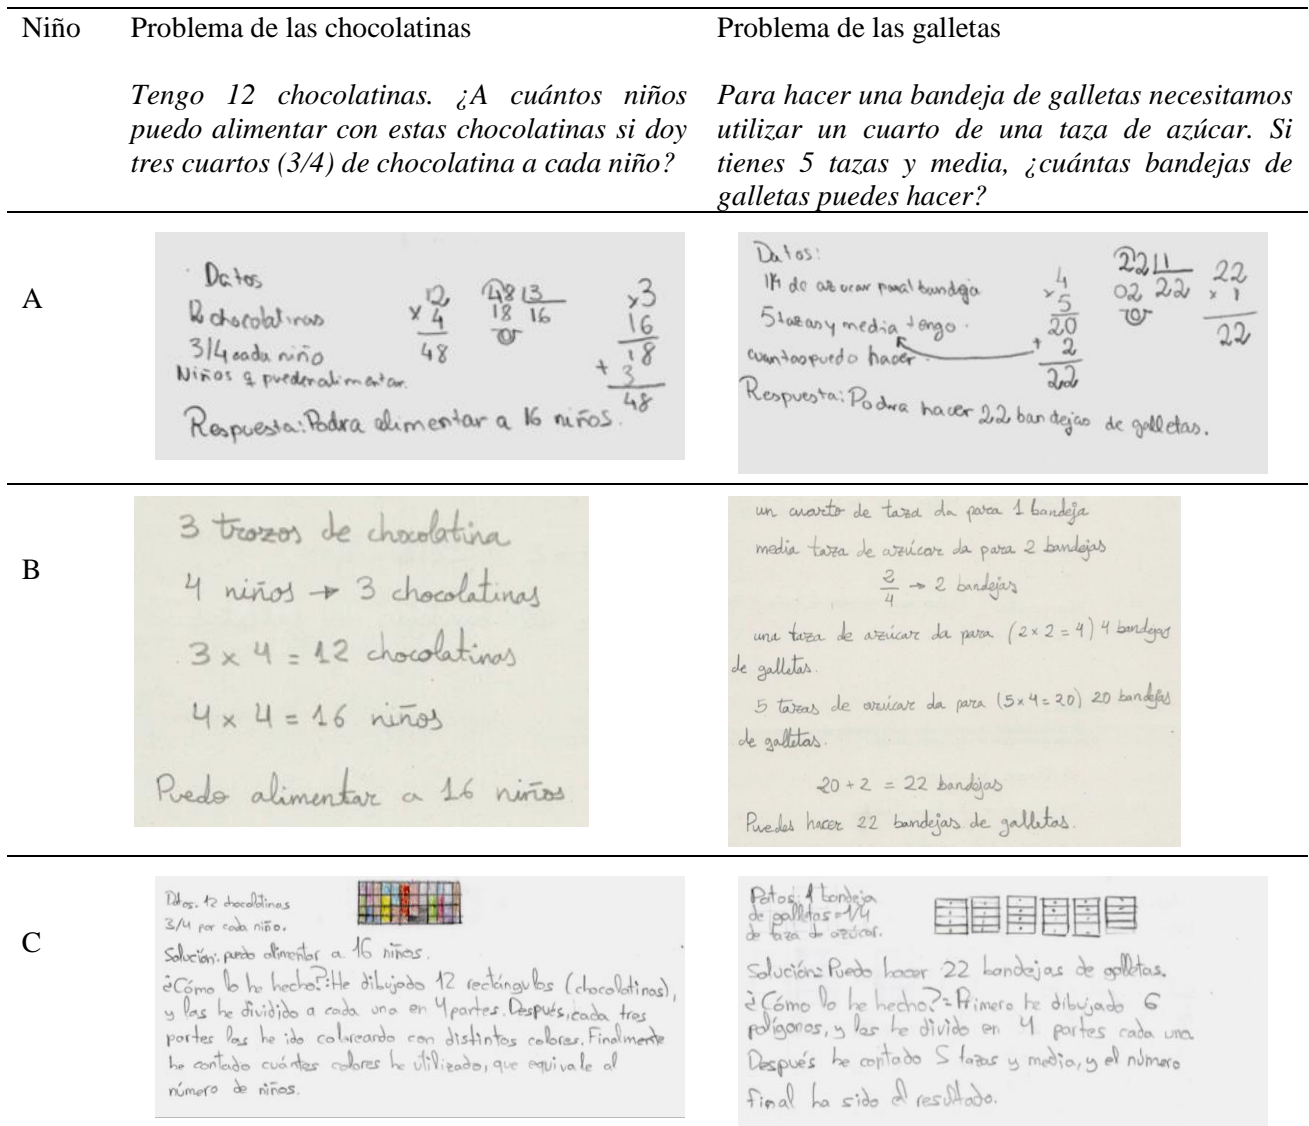 Niño
Problema de las chocolatinas
Problema de las galletas
Tengo 12 chocolatinas. ¿A cuántos niños
puedo alimentar con estas chocolatinas si doy
tres cuartos (3/4) de chocolatina a cada niño?
Para hacer una bandeja de galletas necesitamos
utilizar un cuarto de una taza de azúcar. Si
tienes 5 tazas y media, ¿cuántas bandejas de
galletas puedes hacer?
A
Datos
12 chocolatinas
3/4 cada niño
Niños q pueden alimentar.
12
x 4
48
48 3
18 16
0
x3
16
18
+ 3
48
Respuesta: Podra alimentar a 16 niños.
Datos:
1/4 de azucar para 1 bandeja
5 tazas y media tengo.
cuantas puedo hacer.
4
x 5
20
+ 2
22
22 1
02 22
0
22
x 1
22
Respuesta: Podra hacer 22 bandejas de galletas.
B
3 trozos de chocolatina
4 niños → 3 chocolatinas
3 x 4 = 12 chocolatinas
4 x 4 = 16 niños
Puedo alimentar a 16 niños
un cuarto de taza da para 1 bandeja
media taza de azúcar da para 2 bandejas
2/4 → 2 bandejas
una taza de azúcar da para (2 x 2 = 4) 4 bandejas
de galletas.
5 tazas de azúcar da para (5 x 4 = 20) 20 bandejas
de galletas.
20 + 2 = 22 bandejas
Puedes hacer 22 bandejas de galletas.
C
Datos. 12 chocolatinas
3/4 por cada niño.
Solución: puedo alimentar a 16 niños.
¿Cómo lo he hecho?: He dibujado 12 rectángulos (chocolatinas),
y las he dividido a cada una en 4 partes. Después, cada tres
partes las he ido coloreando con distintos colores. Finalmente
he contado cuántos colores he utilizado, que equivale al
número de niños.
Datos: 1 bandeja
de galletas = 1/4
de taza de azúcar.
Solución: Puedo hacer 22 bandejas de galletas.
¿Cómo lo he hecho? = Primero he dibujado 6
polígonos, y los he divido en 4 partes cada una
Después he contado 5 tazas y media, y el número
final ha sido el resultado.